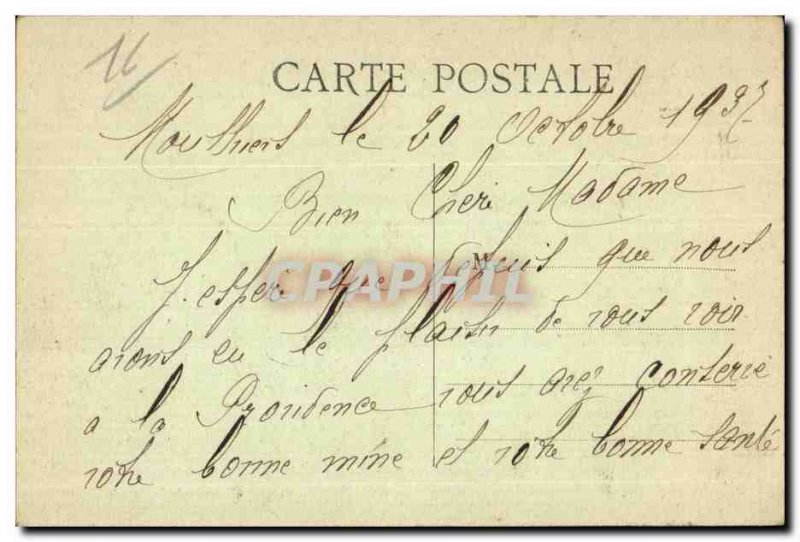 16
CARTE POSTALE
Mouthiers le 20 Octobre 1937
Bien Cheri Madame
J'esperi que depuis que nous
avons eu le plaisir de vous voir
a la Providence vous avez conservé
votre bonne mine et votre bonne santé
M
CPAPHIL